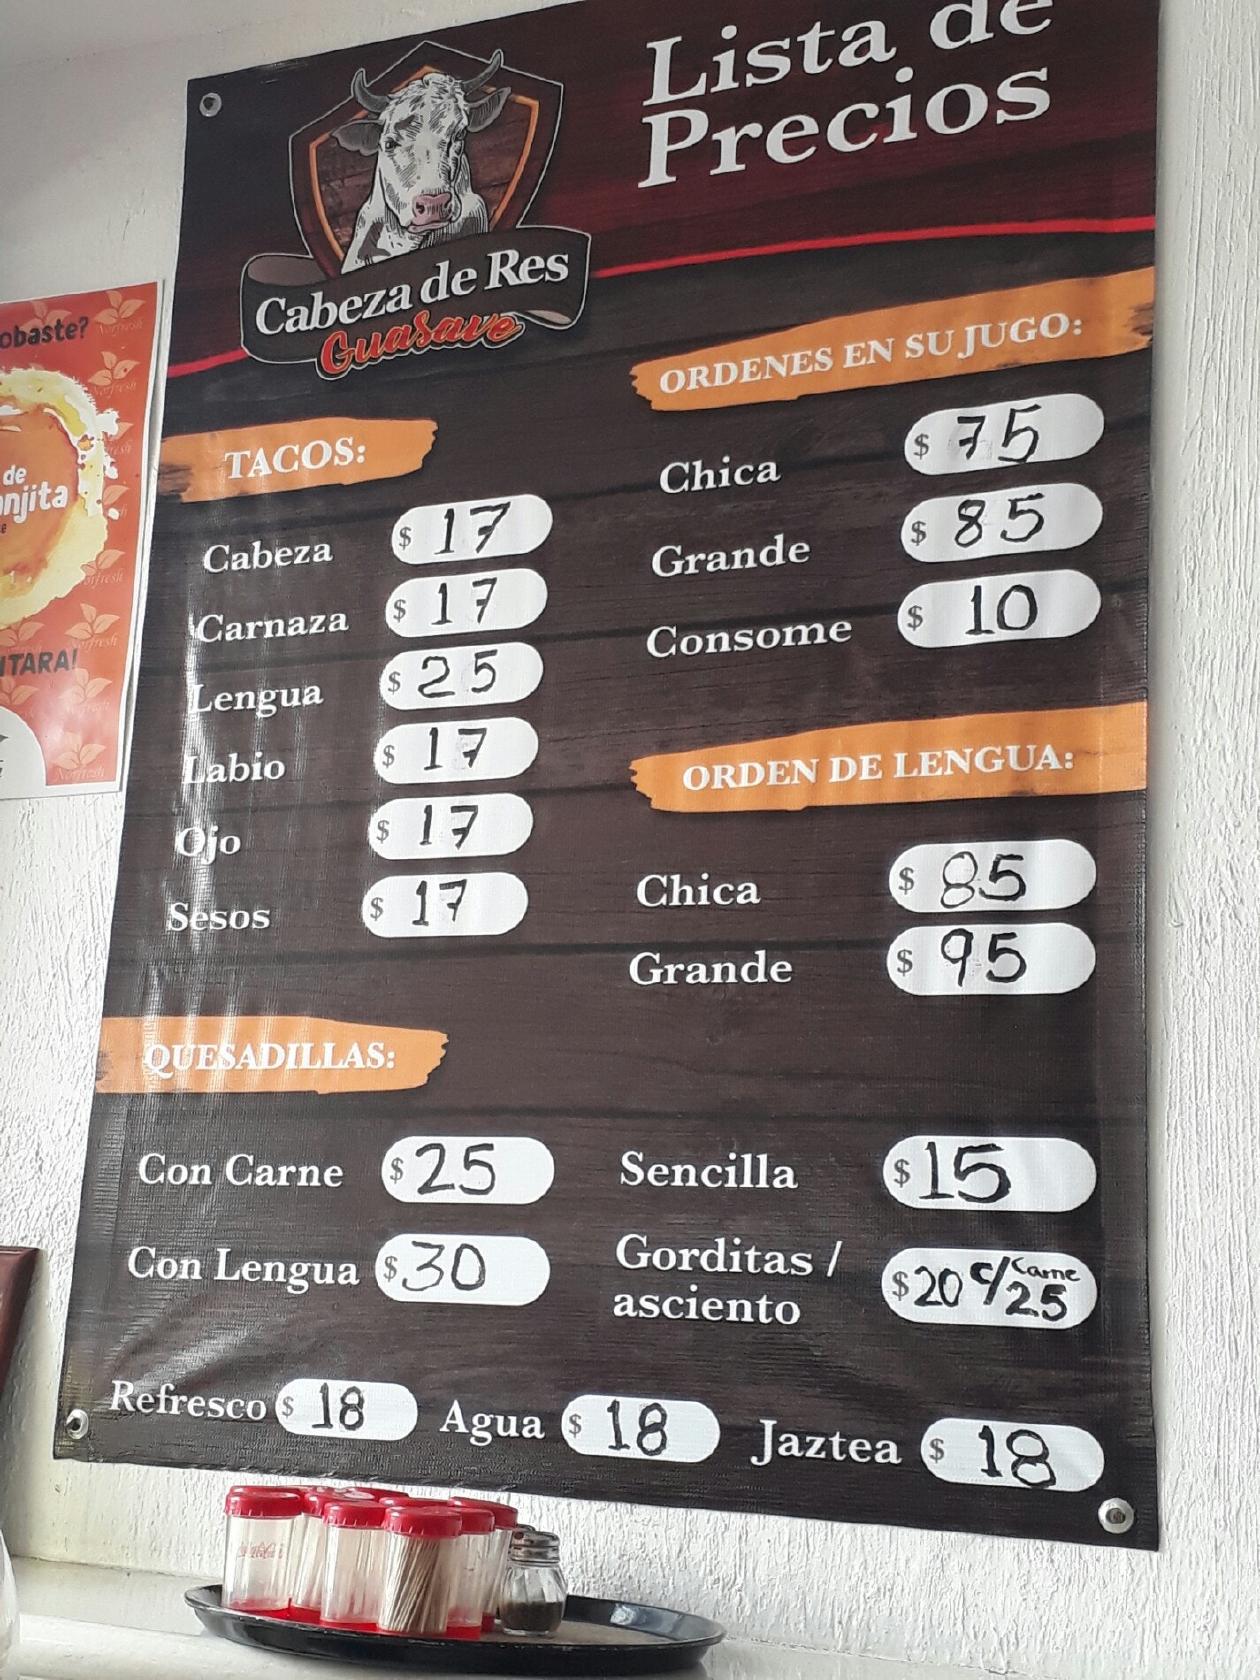 Lista de
Precios
Cabeza de Res
Guasave
ORDENES EN SU JUGO:
Chica $ 75
Grande $ 85
Consome $ 10
TACOS:
Cabeza $ 17
Carnaza $ 17
Lengua $ 25
Labio $ 17
Ojo $ 17
Sesos $ 17
ORDEN DE LENGUA:
Chica $ 85
Grande $ 95
QUESADILLAS:
Con Carne $ 25
Con Lengua $ 30
Sencilla $ 15
Gorditas /
asciento $ 20 c/ Carne 25
Refresco $ 18 Agua $ 18 Jaztea $ 18
obaste?
de
njita
TARA!
Norfresh
Coca-Cola